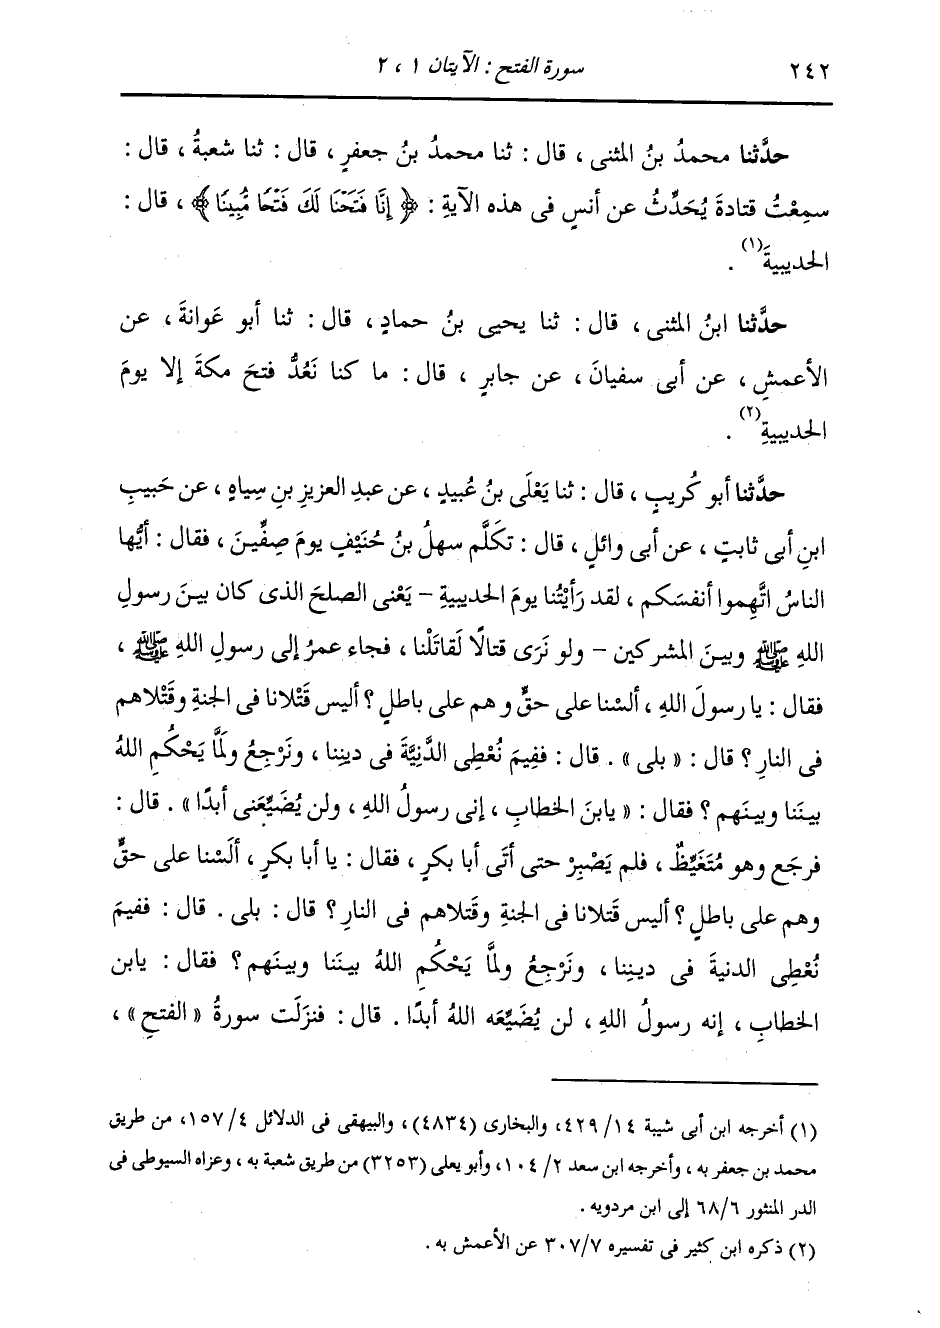 ٢٤٢ سورة الفتح : الآيتان ١ ، ٢
حدَّثنا محمدُ بنُ المثنى ، قال : ثنا محمدُ بنُ جعفرٍ ، قال : ثنا شعبةُ ، قال :
سمِعْتُ قتادةَ يُحَدِّثُ عن أنسٍ فى هذه الآيةِ : ﴿ إِنَّا فَتَحْنَا لَكَ فَتْحًا مُّبِينًا ﴾ ، قال :
الحديبيةَ(١) .
حدَّثنا ابنُ المثنى ، قال : ثنا يحيى بنُ حمادٍ ، قال : ثنا أبو عَوانةَ ، عن
الأعمشِ ، عن أبى سفيانَ ، عن جابرٍ ، قال : ما كنا نَعُدُّ فتحَ مكةَ إلا يومَ
الحديبيةِ(٢) .
حدَّثنا أبو كُريبٍ ، قال : ثنا يَعْلَى بنُ عُبيدٍ ، عن عبدِ العزيزِ بنِ سِياهٍ ، عن حَبيبِ
ابنِ أبى ثابتٍ ، عن أبى وائلٍ ، قال : تكَلَّم سهلُ بنُ حُنَيْفٍ يومَ صِفِّينَ ، فقال : أيُّها
الناسُ اتَّهِموا أنفسَكم ، لقد رَأَيْتُنا يومَ الحديبيةِ – يَعْنى الصلحَ الذى كان بينَ رسولِ
اللهِ ﷺ وبينَ المشركين – ولو نَرَى قتالًا لَقاتَلْنا ، فجاء عمرُ إلى رسولِ اللهِ ﷺ ،
فقال : يا رسولَ اللهِ ، ألسْنا على حقٍّ وهم على باطلٍ ؟ أليس قَتْلانا فى الجنةِ وقَتْلاهم
فى النارِ ؟ قال : « بلى » . قال : ففِيمَ نُعْطِى الدَّنِيَّةَ فى دينِنا ، ونَرْجِعُ ولَمَّا يَحْكُمِ اللهُ
بينَنا وبينَهم ؟ فقال : « يابنَ الخطابِ ، إنى رسولُ اللهِ ، ولن يُضَيِّعَنى أبدًا » . قال :
فرجَع وهو مُتَغَيِّظٌ ، فلم يَصْبِرْ حتى أتَى أبا بكرٍ ، فقال : يا أبا بكرٍ ، ألَسْنا على حقٍّ
وهم على باطلٍ ؟ أليس قَتلانا فى الجنةِ وقَتلاهم فى النارِ ؟ قال : بلى . قال : ففيمَ
نُعْطِى الدنيةَ فى دينِنا ، ونَرْجِعُ ولمَّا يَحْكُمِ اللهُ بينَنا وبينَهم ؟ فقال : يابن
الخطابِ ، إنه رسولُ اللهِ ، لن يُضَيِّعَه اللهُ أبدًا . قال : فنزَلَت سورةُ « الفتحِ » ،
(١) أخرجه ابن أبى شيبة ١٤/ ٤٢٩، والبخارى (٤٨٣٤)، والبيهقى فى الدلائل ٤/ ١٥٧، من طريق
محمد بن جعفر به ، وأخرجه ابن سعد ٢/ ١٠٤، وأبو يعلى (٣٢٥٣) من طريق شعبة به ، وعزاه السيوطى فى
الدر المنثور ٦/ ٦٨ إلى ابن مردويه .
(٢) ذكره ابن كثير فى تفسيره ٧/ ٣٠٧ عن الأعمش به .